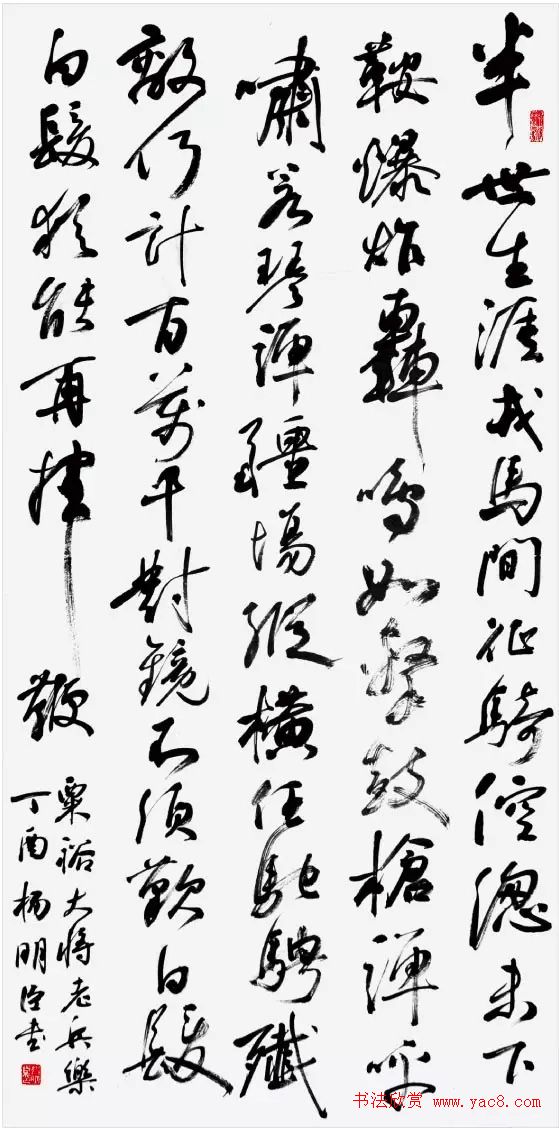 半世生涯戎馬間征騎倥傯未下
鞍爆炸轟鳴如擊鼓槍彈呼
嘯若琴彈疆場縱橫任馳騁殲
敵何計百萬千對鏡不須歎白髮
白髮猶能再揮鞭
粟裕大將老兵樂
丁酉楊明臣書
书法欣赏
www.yac8.com